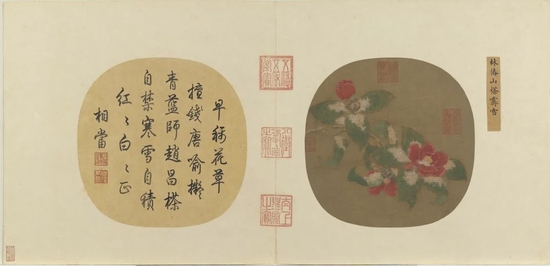 林椿山茶霽雪
早稱花草
擅錢唐喻擬
青藍師趙昌楪
自禁寒雪自積
紅〻白〻正
相當